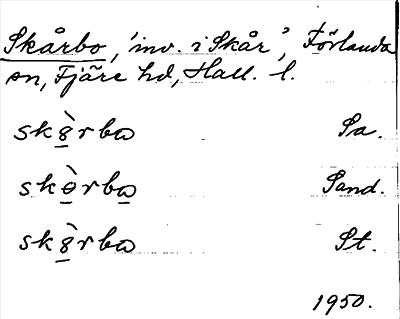 Skårbo, 'inv. i Skår', Förlanda
sn, Fjäre hd, Hall. l.
skàrba Sa.
skòrba Sand.
skàrba St.
1950.